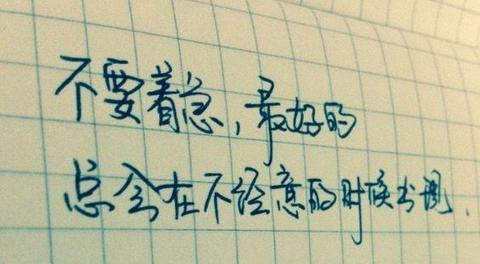 不要着急,最好的
总会在不经意的时候出现.